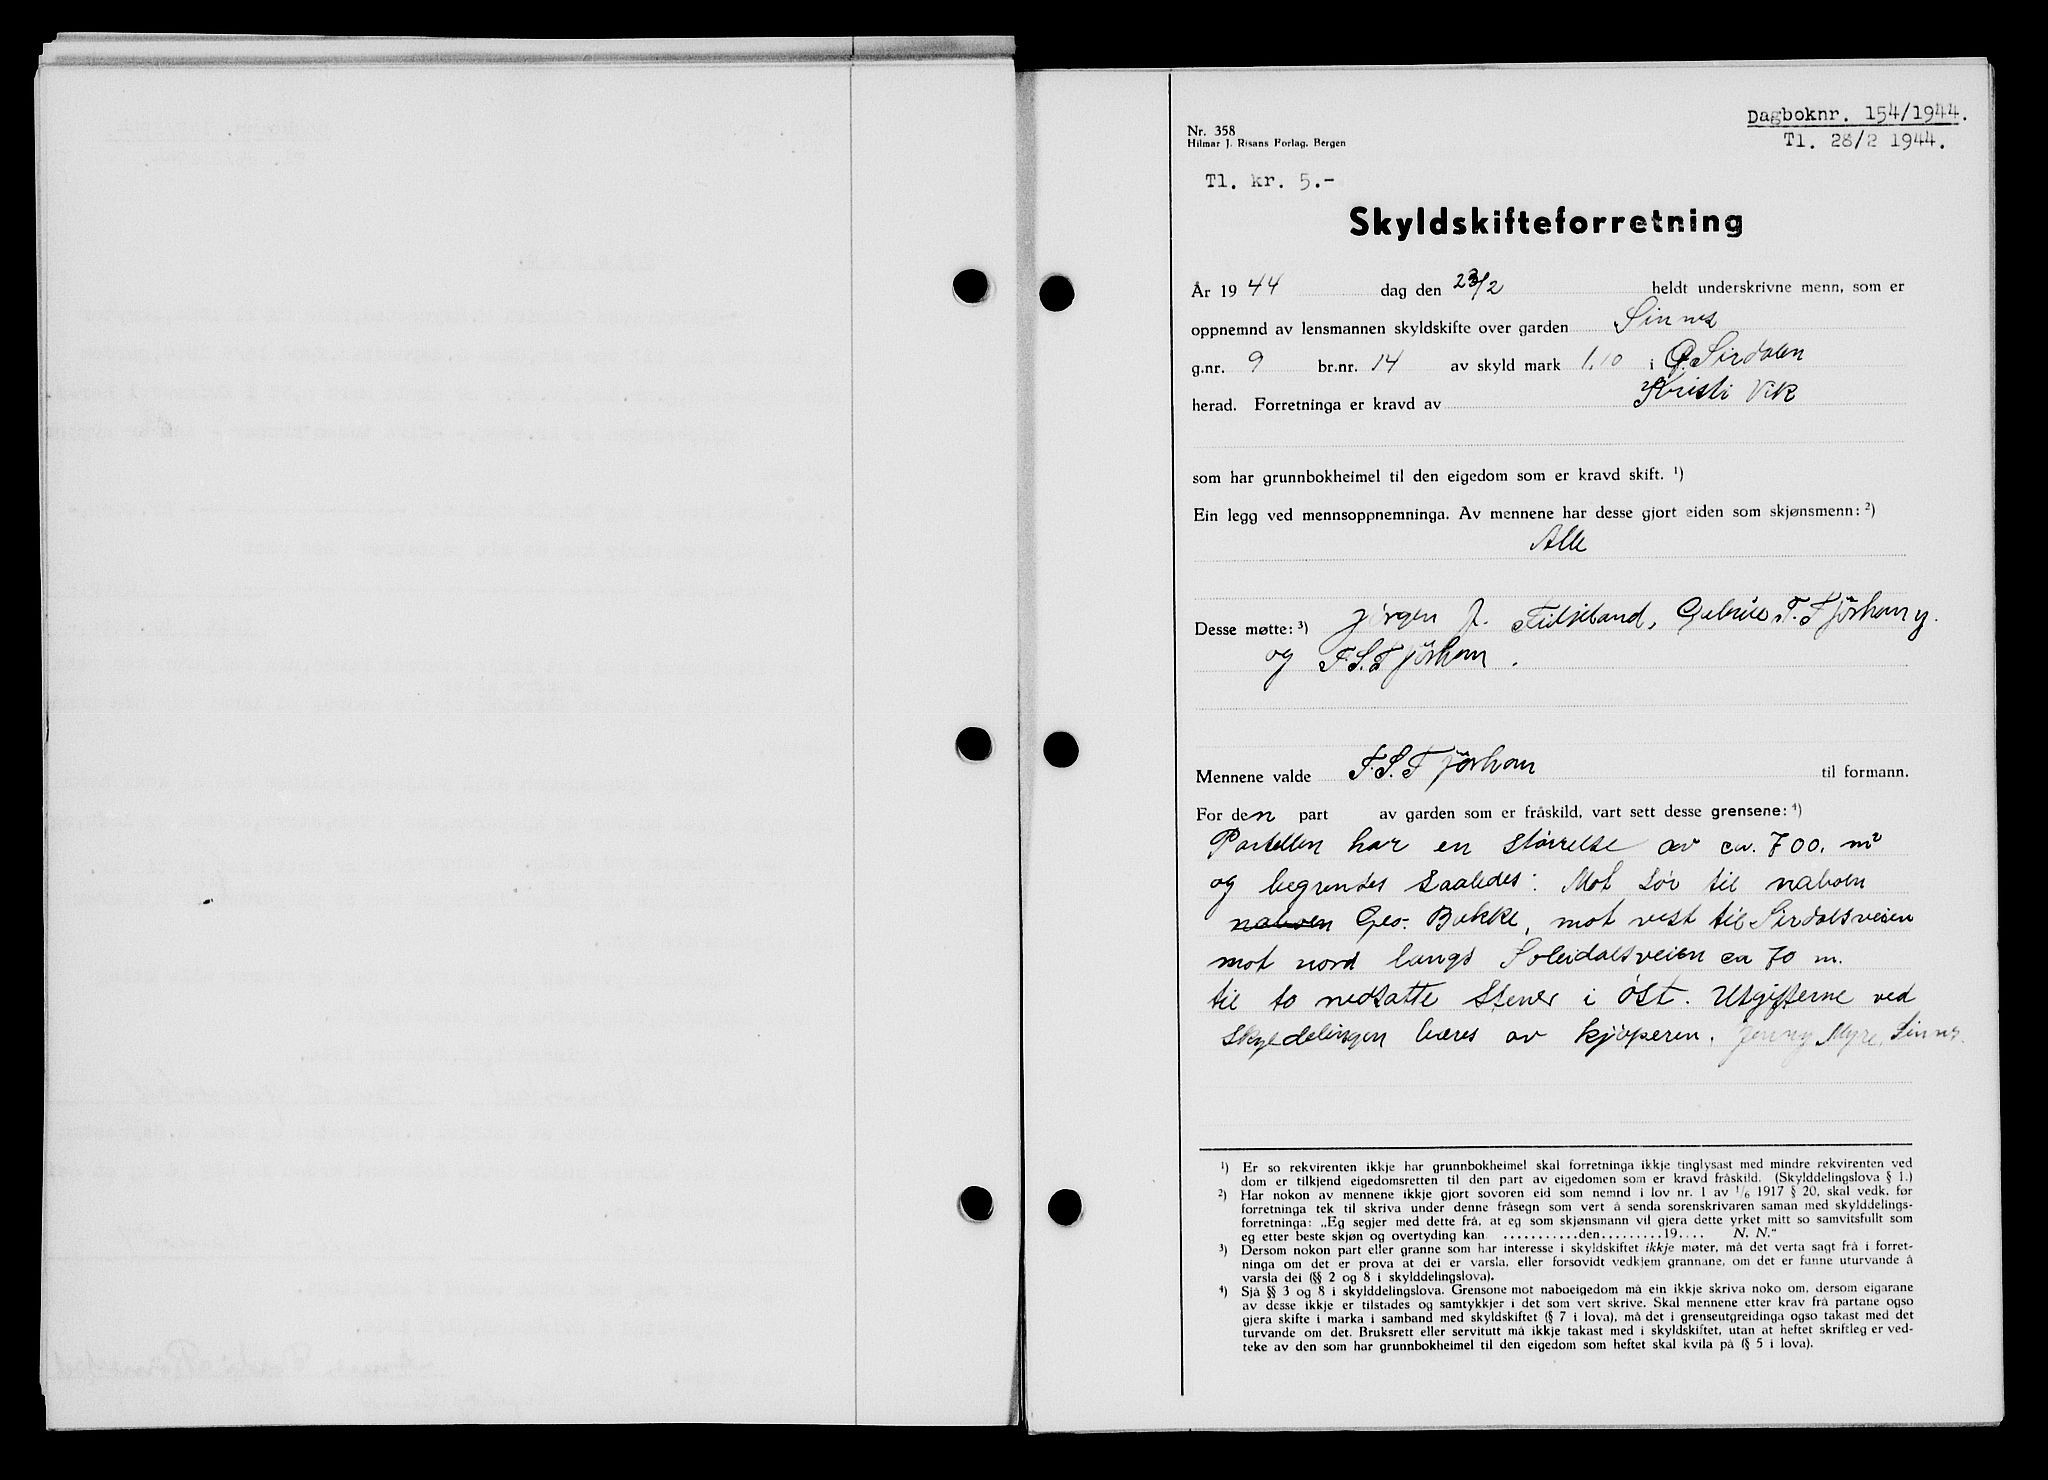 Dagboknr. 154/1944.
Tl. 28/2 1944.
Nr. 358
Hilmar J. Risans Forlag, Bergen
Tl. kr. 5.-
Skyldskifteforretning
År 1944 dag den 23/2 heldt underskrivne menn, som er
oppnemnd av lensmannen skyldskifte over garden Sinnes
g.nr. 9 br.nr. 14 av skyld mark 1,10 i Ø. Sirdalen
herad. Forretninga er kravd av Kristi Vik
som har grunnbokheimel til den eigedom som er kravd skift. ¹)
Ein legg ved mennsoppnemninga. Av mennene har desse gjort eiden som skjønsmenn: ²)
Alle
Desse møtte: ³) Jørgen J. Filsland, Gabriel T. Fjörhom y.
og F. S. Fjörhom.
Mennene valde F. S. Fjörhom til formann.
For den part av garden som er fråskild, vart sett desse grensene: ⁴)
Partellen har en størrelse av ca. 700. m²
og begrendes saaledes: Mot Sör til naboen
naboen Geo. Bakke, mot vest til Sirdalsveien
mot nord langs Soleidalsveien ca 70 m.
til to nedsatte Stener i öst. Utgifterne ved
Skyldelingen bæres av kjöperen. Jenny Myre, Sinnes.
¹) Er so rekvirenten ikkje har grunnbokheimel skal forretninga ikkje tinglysast med mindre rekvirenten ved
dom er tilkjend eigedomsretten til den part av eigedomen som er kravd fråskild. (Skylddelingslova § 1.)
²) Har nokon av mennene ikkje gjort sovoren eid som nemnd i lov nr. 1 av 1/6 1917 § 20, skal vedk. før
forretninga tek til skriva under denne fråsegn som vert å senda sorenskrivaren saman med skylddelings-
forretninga: „Eg segjer med dette frå, at eg som skjønsmann vil gjera dette yrket mitt so samvitsfullt som
eg etter beste skjøn og overtyding kan ...........den.........19.... N. N.“
³) Dersom nokon part eller granne som har interesse i skyldskiftet ikkje møter, må det verta sagt frå i forret-
ninga om det er prova at dei er varsla, eller forsovidt vedkjem grannane, om det er funne uturvande å
varsla dei (§§ 2 og 8 i skylddelingslova).
⁴) Sjå §§ 3 og 8 i skylddelingslova. Grensone mot naboeigedom må ein ikkje skriva noko om, dersom eigarane
av desse ikkje er tilstades og samtykkjer i det som vert skrive. Skal mennene etter krav frå partane ogso
gjera skifte i marka i samband med skyldskiftet (§ 7 i lova), må det i grenseutgreidinga ogso takast med det
turvande om det. Bruksrett eller servitutt må ikkje takast med i skyldskiftet, utan at heftet skriftleg er ved-
teke av den som har grunnbokheimel til den eigedom som heftet skal kvila på (§ 5 i lova).